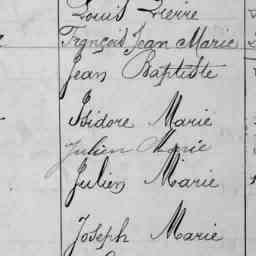 Louis Pierre
François Jean Marie
Jean Baptiste
Isidore Marie
Julien Marie
Julien Marie
Joseph Marie